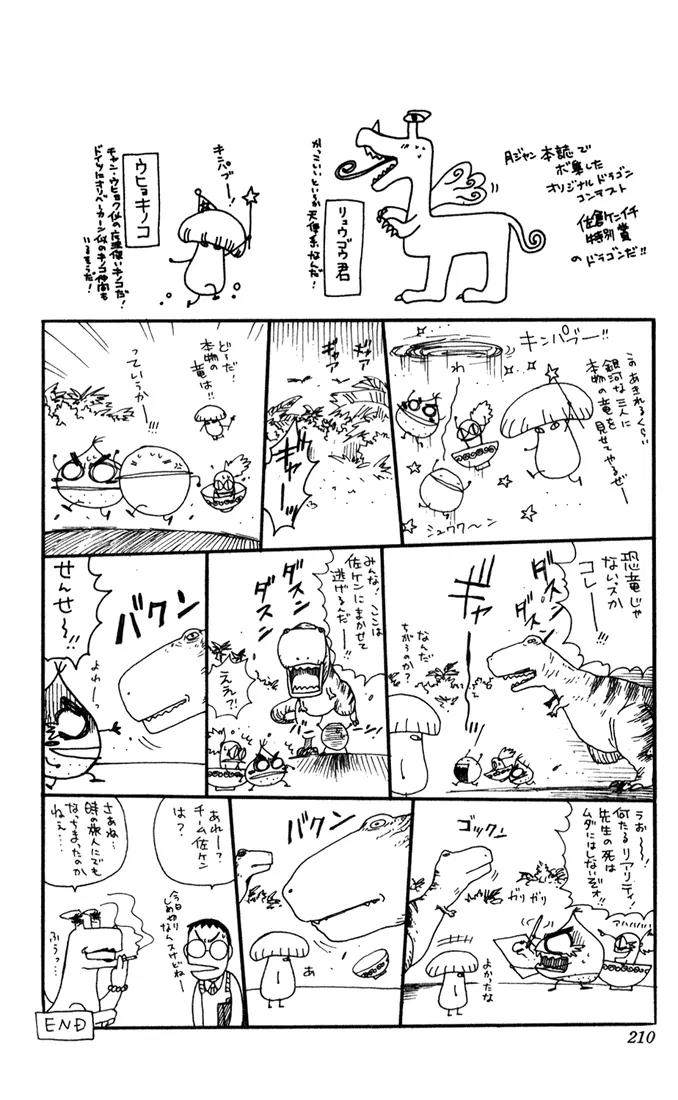 月ジャン本誌で
ボ集した
オリジナルドラゴン
コンテスト
佐倉ケンイチ
特別賞
のドラゴンだ!!
リュウゴウ君
かっこいいというか
天使系なんだ!
キンパブー!
ウヒョキノコ
チャン・ウヒョク似の魔法使いキノコだ!
ドイツにオリバーカーン似のキノコ仲間も
いるそうだ!
キンパブー!!
このあきれるくらい
銀河な三人に
本物の竜を
見せてやるぜー
わ
シュワワ〜ン
ギャア
ギャア
ギャーッ
ど〜だ!
本物の
竜は!!
っていうか
恐竜じゃ
ないスか
コレ——!!
ダスン
ダスン
ギャー
なんだ
ちがうのか?
ダスン
ダスン
みんな!ここは
佐ケンにまかせて
逃げるだ——!!
ええ?!
バクン
よれーっ
せんせ〜!!
うお〜〜!
何たるリアリティ!
先生の死は
ムダにはしないぞォ!!
アハハハハ
ガリガリ
ゴックン
よかったな
バクン
あ
あれー?
チーム佐ケン
は?
今日〆切り
なんスけどねー
さあね…
時の旅人にでも
なっちまったのか
ねえ…
ふうっ…
END
210